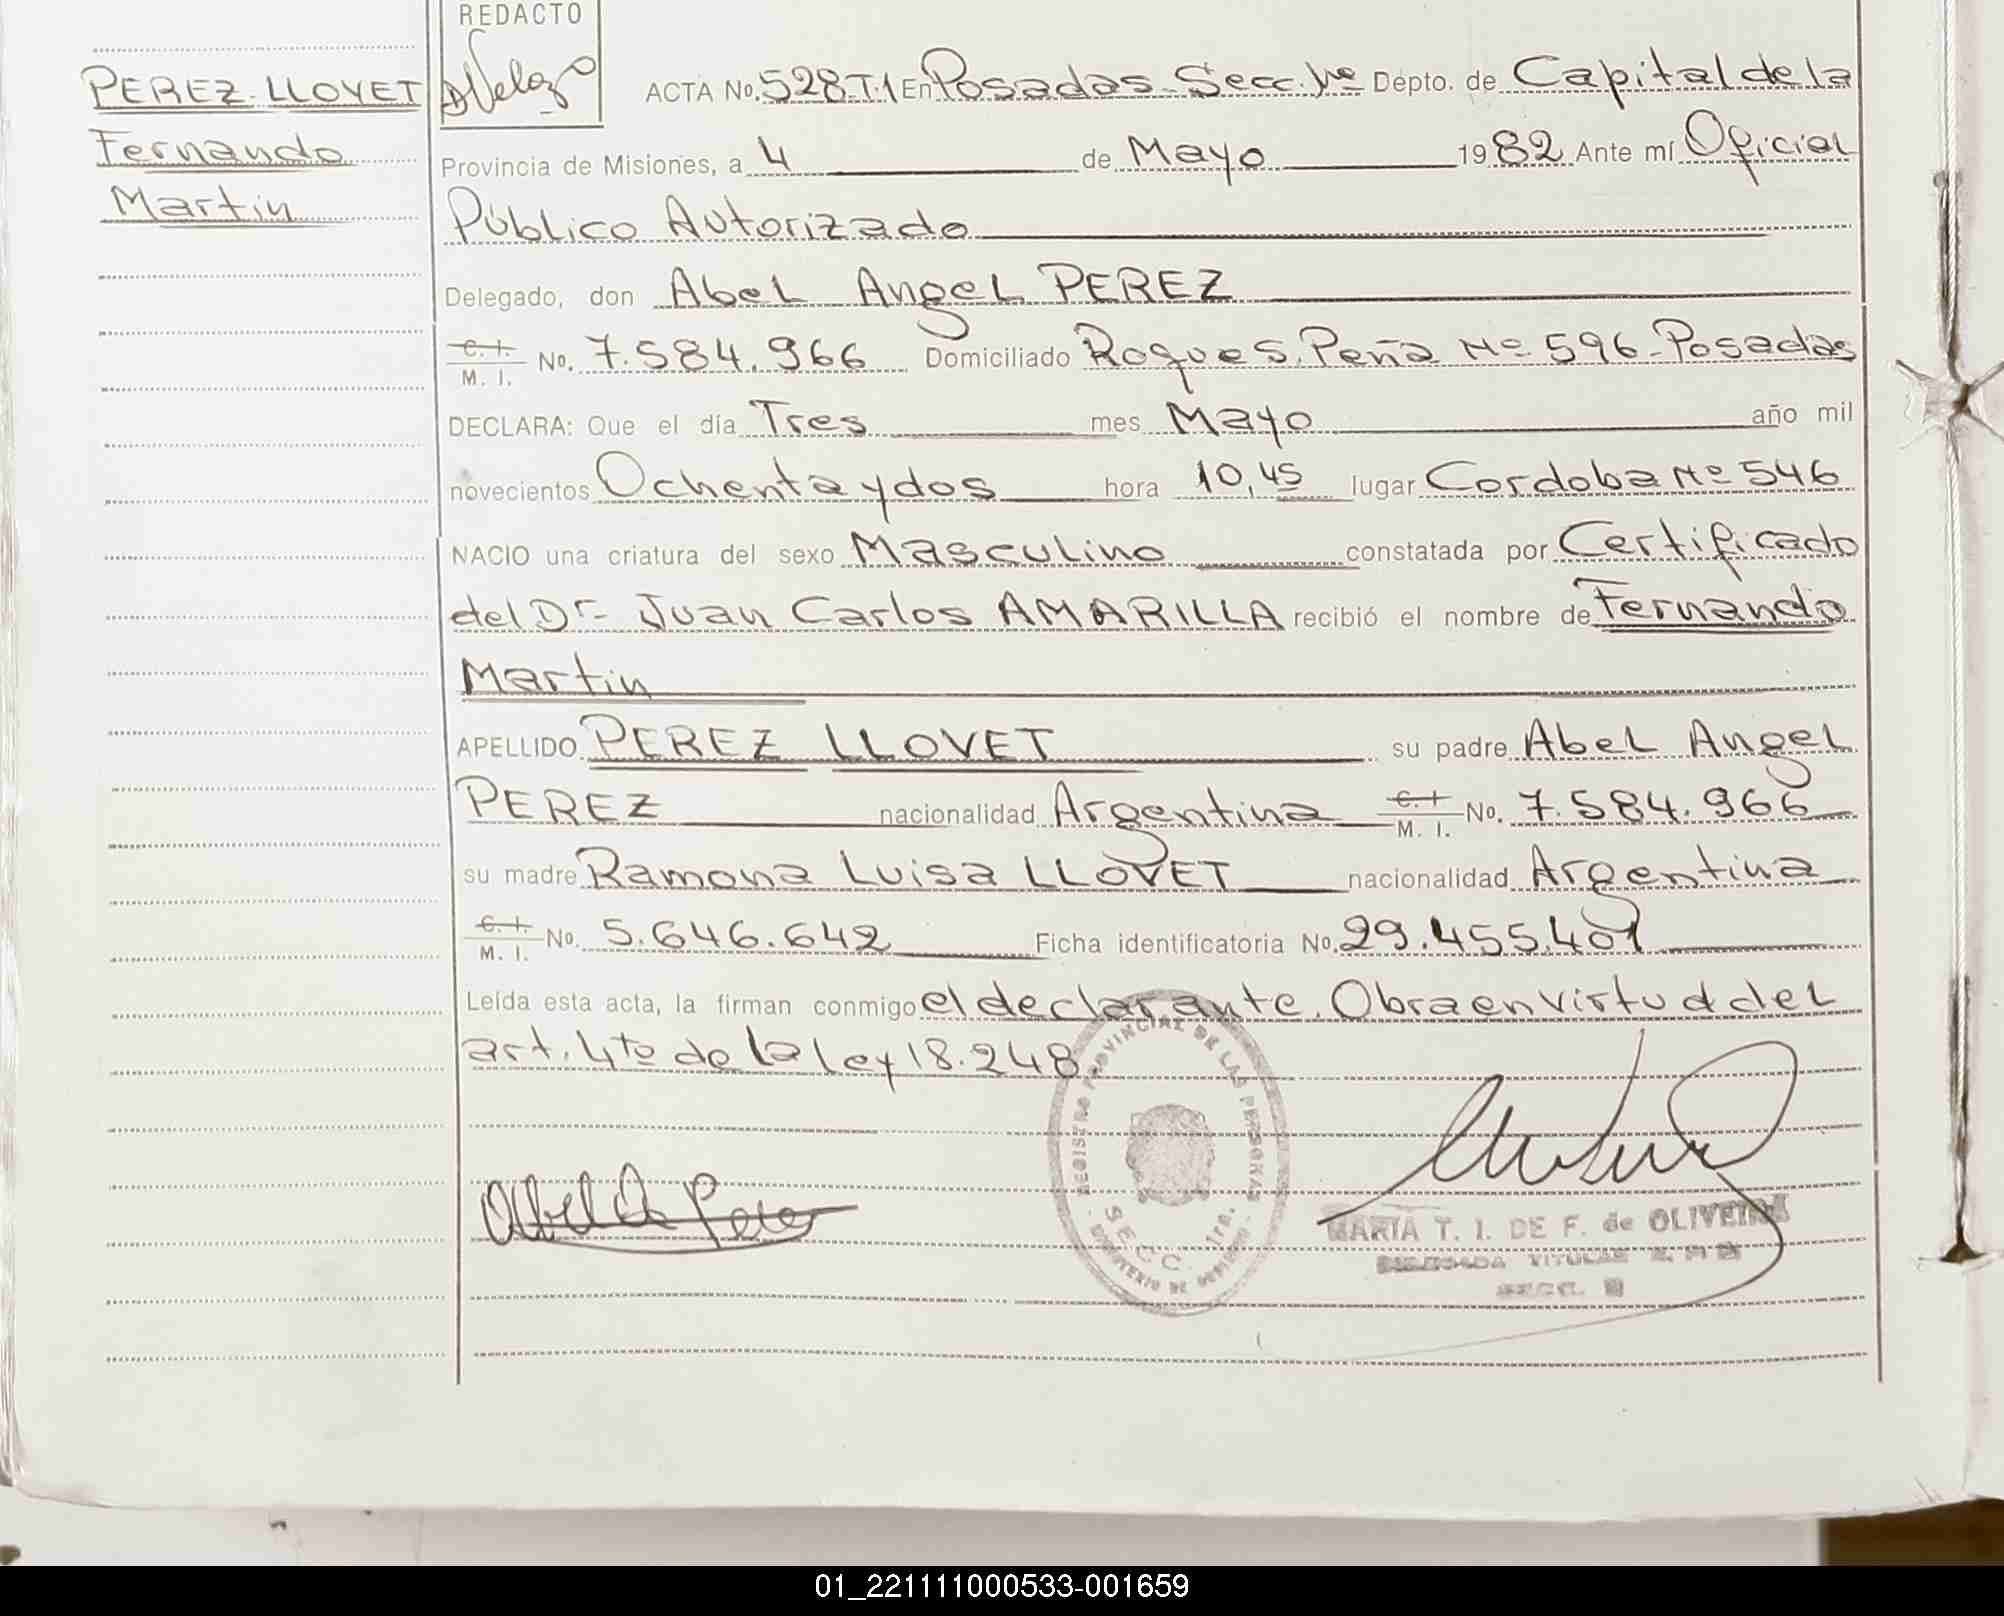 REDACTO
DVelozo
PEREZ-LLOVET
Fernando
Martin
ACTA No. 528-T.1 En Posadas-Secc. 1ra Depto. de Capital de la
Provincia de Misiones, a 4 de Mayo 1982 Ante mí Oficial
Público Autorizado
Delegado, don Abel Angel PEREZ
C. I. M. I. No. 7.584.966 Domiciliado Roque S. Peña Nº 596-Posadas
DECLARA: Que el día Tres mes Mayo año mil
novecientos Ochenta y dos hora 10,45 lugar Cordoba Nº 546
NACIO una criatura del sexo Masculino constatada por Certificado
del Dr- Juan Carlos AMARILLA recibió el nombre de Fernando
Martin
APELLIDO PEREZ LLOVET su padre Abel Angel
PEREZ nacionalidad Argentina C. I. M. I. No. 7.584.966
su madre Ramona Luisa LLOVET nacionalidad Argentina
C. I. M. I. No. 5.646.642 Ficha identificatoria No. 29.455.401
Leída esta acta, la firman conmigo el declarante. Obra en virtud del
art. 4to de la ley 18.248.
REGISTRO PROVINCIAL DE LAS PERSONAS
SECC. 1ra.
MINISTERIO DE GOBIERNO
Abel A Perez
MARIA T. I. DE F. de OLIVEIRA
DELEGADA TITULAR
SECC.
01_221111000533-001659